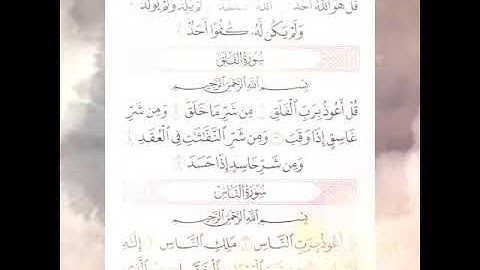 قُلْ هُوَ ٱللَّهُ أَحَدٌ ٱللَّهُ لَمْ يَلِدْ وَلَمْ يُولَدْ
وَلَمْ يَكُن لَّهُۥ كُفُوًا أَحَدٌۢ
سُورَةُ الفَلَقِ
بِسْمِ ٱللَّهِ ٱلرَّحْمَٰنِ ٱلرَّحِيمِ
قُلْ أَعُوذُ بِرَبِّ ٱلْفَلَقِ مِن شَرِّ مَا خَلَقَ وَمِن شَرِّ
غَاسِقٍ إِذَا وَقَبَ وَمِن شَرِّ ٱلنَّفَّٰثَٰتِ فِى ٱلْعُقَدِ
وَمِن شَرِّ حَاسِدٍ إِذَا حَسَدَ
سُورَةُ النَّاسِ
بِسْمِ ٱللَّهِ ٱلرَّحْمَٰنِ ٱلرَّحِيمِ
قُلْ أَعُوذُ بِرَبِّ ٱلنَّاسِ مَلِكِ ٱلنَّاسِ إِلَٰهِ